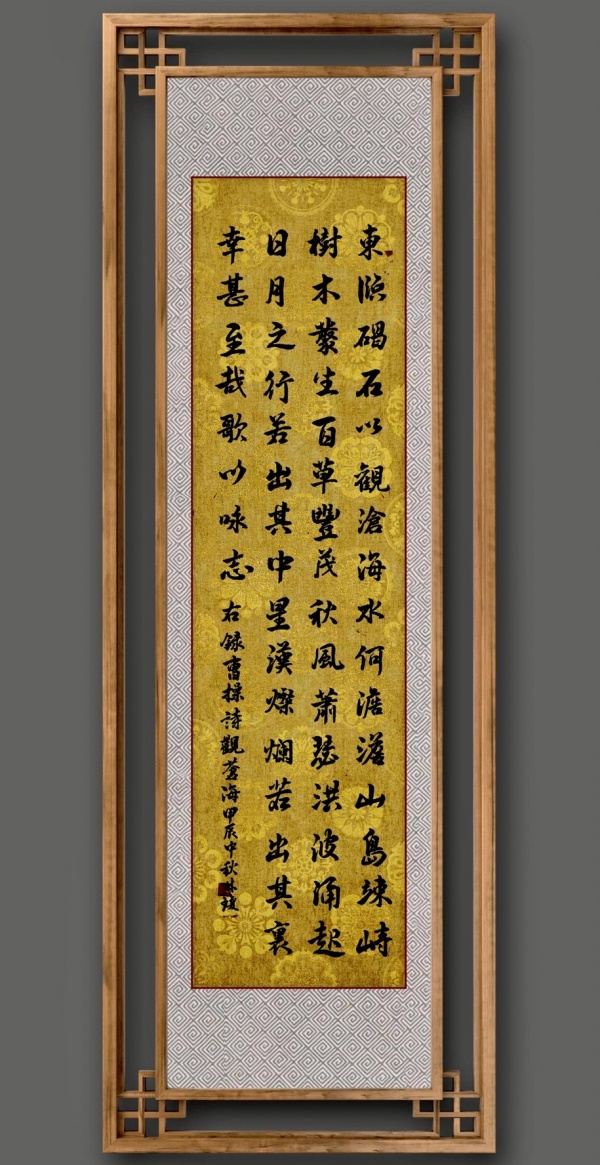 東臨碣石以觀滄海水何澹澹山島竦峙
樹木叢生百草豐茂秋風蕭瑟洪波涌起
日月之行若出其中星漢燦爛若出其裏
幸甚至哉歌以咏志
右録曹操詩觀蒼海甲辰中秋林